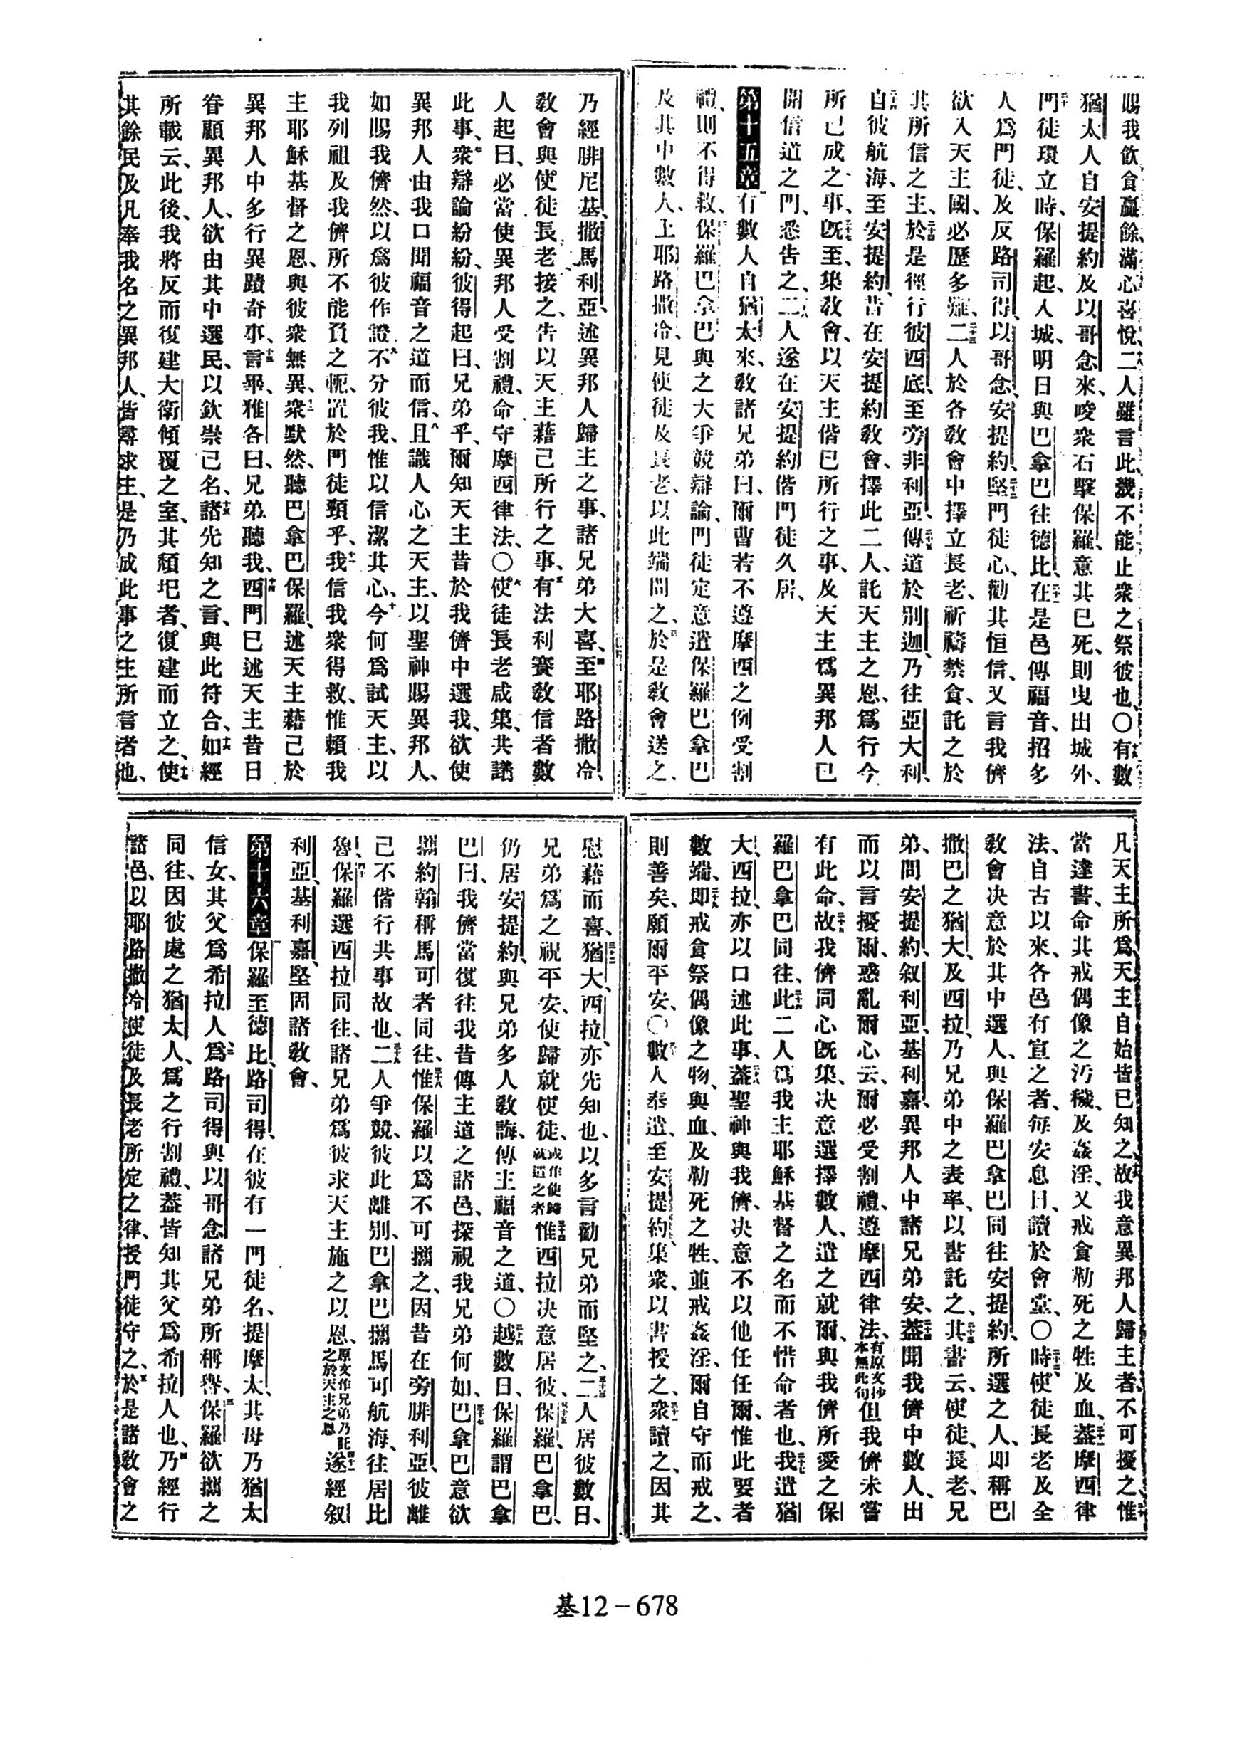 賜我飲食贏餘滿心喜悅二人雖言此幾不能止衆之祭彼也〇有數
猶太人自安提約及以哥念來唆衆石擊保羅意其已死則曳出城外、
門徒環立時保羅起入城明日與巴拿巴往德比在是邑傳福音、招多
人爲門徒、及反路司得、以哥念、安提約、堅門徒心勸其恒信、又言我儕
欲入天主國、必歷多難、二人於各教會中擇立長老、祈禱禁食、託之於
其所信之主、於是徑行彼西底、至旁非利亞、傳道於別迦、乃往亞大利、
自彼航海、至安提約、昔在安提約教會、擇此二人、託天主之恩、爲行今
所已成之事、既至集教會、以天主偕已所行之事、及天主爲異邦人已
開信道之門、悉告之、二人遂在安提約偕門徒久居、
第十五章 有數人自猶太來、教諸兄弟曰、爾曹若不遵摩西之例受割
禮、則不得救、保羅巴拿巴與之大爭競辯論、門徒定意遣保羅巴拿巴
及其中數人、上耶路撒冷、見使徒及長老、以此端問之、於是教會送之、
乃經腓尼基、撒馬利亞、述異邦人歸主之事、諸兄弟大喜、至耶路撒冷、
教會與使徒長老接之、告以天主藉己所行之事、有法利賽教信者數
人起曰、必當使異邦人受割禮、命守摩西律法、〇使徒長老咸集、共議
此事、衆辯論紛紛、彼得起曰、兄弟乎、爾知天主昔於我儕中選我、欲使
異邦人由我口聞福音之道而信、且識人心之天主、以聖神賜異邦人、
如賜我儕然、以爲彼作證、不分彼我、惟以信潔其心、今何爲試天主、以
我列祖及我儕所不能負之軛、置於門徒頸乎、我信我衆得救、惟賴我
主耶穌基督之恩、與彼衆無異、衆默然、聽巴拿巴保羅、述天主藉己於
異邦人中多行異蹟奇事、言畢、雅各曰、兄弟聽我、西門已述天主昔日
眷顧異邦人、欲由其中選民、以欽崇己名、諸先知之言、與此符合、如經
所載云、此後、我將反而復建大衛傾覆之室、其頹圮者、復建而立之、使
其餘民及凡奉我名之異邦人、皆尋求主、是乃成此事之主所言者也、
凡天主所爲、天主自始皆已知之、故我意異邦人歸主者、不可擾之、惟
當達書、命其戒偶像之汚穢、及姦淫、又戒食勒死之牲及血、蓋摩西律
法、自古以來、各邑有宣之者、每安息日、讀於會堂、〇時使徒長老及全
教會決意於其中選人、與保羅巴拿巴同往安提約、所選之人、即稱巴
撒巴之猶大、及西拉、乃兄弟中之表率、以書託之、其書云、使徒、長老、兄
弟、問安提約、敘利亞、基利嘉、異邦人中諸兄弟安、蓋聞我儕中數人、出
而以言擾爾、惑亂爾心云、爾必受割禮、遵摩西律法、有原文抄本無此句但我儕未嘗
有此命、故我儕同心既集、决意選擇數人、遣之就爾、與我儕所愛之保
羅巴拿巴同往、此二人爲我主耶穌基督之名而不惜命者也、我遣猶
大西拉、亦以口述此事、蓋聖神與我儕、决意不以他任任爾、惟此要者
數端、即戒食祭偶像之物、與血、及勒死之牲、並戒姦淫、爾自守而戒之、
則善矣、願爾平安、〇數人奉遣、至安提約、集衆、以書授之、衆讀之、因其
慰藉而喜、猶大、西拉、亦先知也、以多言勸兄弟而堅之、二人居彼數日、
兄弟爲之祝平安、使歸就使徒、或作使歸就遣之者惟西拉决意居彼、保羅、巴拿巴、
仍居安提約、與兄弟多人教誨、傳主福音之道、〇越數日、保羅謂巴拿
巴曰、我儕當復往我昔傳主道之諸邑、探視我兄弟何如、巴拿巴意欲
攜約翰稱馬可者同往、惟保羅以爲不可攜之、因昔在旁腓利亞、彼離
己不偕行共事故也、二人爭競、彼此離別、巴拿巴攜馬可航海、往居比
魯、保羅選西拉同往、諸兄弟爲彼求天主施之以恩、原文作兄弟乃託之於天主之恩遂經敘
利亞、基利嘉、堅固諸教會、
第十六章 保羅至德比、路司得、在彼有一門徒名提摩太、其母乃猶太
信女、其父爲希拉人、爲路司得與以哥念諸兄弟所稱譽、保羅欲攜之
同往、因彼處之猶太人、爲之行割禮、蓋皆知其父爲希拉人也、乃經行
諸邑、以耶路撒冷使徒及長老所定之律、授門徒守之、於是諸教會之
基12－678